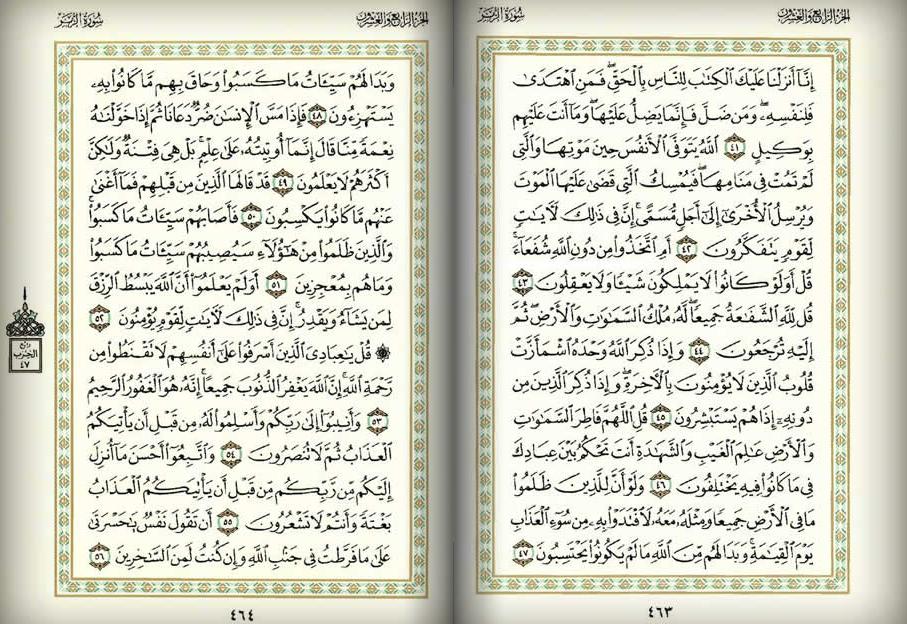 الجزء الرابع والعشرون
سورة الزمر
إِنَّا أَنزَلْنَا عَلَيْكَ ٱلْكِتَٰبَ لِلنَّاسِ بِٱلْحَقِّ ۖ فَمَنِ ٱهْتَدَىٰ
فَلِنَفْسِهِۦ ۖ وَمَن ضَلَّ فَإِنَّمَا يَضِلُّ عَلَيْهَا ۖ وَمَآ أَنتَ عَلَيْهِم
بِوَكِيلٍ ٤١ ٱللَّهُ يَتَوَفَّى ٱلْأَنفُسَ حِينَ مَوْتِهَا وَٱلَّتِى
لَمْ تَمُتْ فِى مَنَامِهَا ۖ فَيُمْسِكُ ٱلَّتِى قَضَىٰ عَلَيْهَا ٱلْمَوْتَ
وَيُرْسِلُ ٱلْأُخْرَىٰٓ إِلَىٰٓ أَجَلٍ مُّسَمًّى ۚ إِنَّ فِى ذَٰلِكَ لَءَايَٰتٍ
لِّقَوْمٍ يَتَفَكَّرُونَ ٤٢ أَمِ ٱتَّخَذُوا۟ مِن دُونِ ٱللَّهِ شُفَعَآءَ ۚ
قُلْ أَوَلَوْ كَانُوا۟ لَا يَمْلِكُونَ شَيْـًٔا وَلَا يَعْقِلُونَ ٤٣
قُل لِّلَّهِ ٱلشَّفَٰعَةُ جَمِيعًا ۖ لَّهُۥ مُلْكُ ٱلسَّمَٰوَٰتِ وَٱلْأَرْضِ ۖ ثُمَّ
إِلَيْهِ تُرْجَعُونَ ٤٤ وَإِذَا ذُكِرَ ٱللَّهُ وَحْدَهُ ٱشْمَأَزَّتْ
قُلُوبُ ٱلَّذِينَ لَا يُؤْمِنُونَ بِٱلْءَاخِرَةِ ۖ وَإِذَا ذُكِرَ ٱلَّذِينَ مِن
دُونِهِۦٓ إِذَا هُمْ يَسْتَبْشِرُونَ ٤٥ قُلِ ٱللَّهُمَّ فَاطِرَ ٱلسَّمَٰوَٰتِ
وَٱلْأَرْضِ عَٰلِمَ ٱلْغَيْبِ وَٱلشَّهَٰدَةِ أَنتَ تَحْكُمُ بَيْنَ عِبَادِكَ
فِى مَا كَانُوا۟ فِيهِ يَخْتَلِفُونَ ٤٦ وَلَوْ أَنَّ لِلَّذِينَ ظَلَمُوا۟
مَا فِى ٱلْأَرْضِ جَمِيعًا وَمِثْلَهُۥ مَعَهُۥ لَٱفْتَدَوْا۟ بِهِۦ مِن سُوٓءِ ٱلْعَذَابِ
يَوْمَ ٱلْقِيَٰمَةِ ۚ وَبَدَا لَهُم مِّنَ ٱللَّهِ مَا لَمْ يَكُونُوا۟ يَحْتَسِبُونَ ٤٧
٤٦٣
الجزء الرابع والعشرون
سورة الزمر
وَبَدَا لَهُمْ سَيِّـَٔاتُ مَا كَسَبُوا۟ وَحَاقَ بِهِم مَّا كَانُوا۟ بِهِۦ
يَسْتَهْزِءُونَ ٤٨ فَإِذَا مَسَّ ٱلْإِنسَٰنَ ضُرٌّ دَعَانَا ثُمَّ إِذَا خَوَّلْنَٰهُ
نِعْمَةً مِّنَّا قَالَ إِنَّمَآ أُوتِيتُهُۥ عَلَىٰ عِلْمٍۭ ۚ بَلْ هِىَ فِتْنَةٌ وَلَٰكِنَّ
أَكْثَرَهُمْ لَا يَعْلَمُونَ ٤٩ قَدْ قَالَهَا ٱلَّذِينَ مِن قَبْلِهِمْ فَمَآ أَغْنَىٰ
عَنْهُم مَّا كَانُوا۟ يَكْسِبُونَ ٥٠ فَأَصَابَهُمْ سَيِّـَٔاتُ مَا كَسَبُوا۟ ۚ
وَٱلَّذِينَ ظَلَمُوا۟ مِنْ هَٰٓؤُلَآءِ سَيُصِيبُهُمْ سَيِّـَٔاتُ مَا كَسَبُوا۟
وَمَا هُم بِمُعْجِزِينَ ٥١ أَوَلَمْ يَعْلَمُوٓا۟ أَنَّ ٱللَّهَ يَبْسُطُ ٱلرِّزْقَ
لِمَن يَشَآءُ وَيَقْدِرُ ۚ إِنَّ فِى ذَٰلِكَ لَءَايَٰتٍ لِّقَوْمٍ يُؤْمِنُونَ ٥٢
۞ قُلْ يَٰعِبَادِىَ ٱلَّذِينَ أَسْرَفُوا۟ عَلَىٰٓ أَنفُسِهِمْ لَا تَقْنَطُوا۟ مِن
رَّحْمَةِ ٱللَّهِ ۚ إِنَّ ٱللَّهَ يَغْفِرُ ٱلذُّنُوبَ جَمِيعًا ۚ إِنَّهُۥ هُوَ ٱلْغَفُورُ ٱلرَّحِيمُ
٥٣ وَأَنِيبُوٓا۟ إِلَىٰ رَبِّكُمْ وَأَسْلِمُوا۟ لَهُۥ مِن قَبْلِ أَن يَأْتِيَكُمُ
ٱلْعَذَابُ ثُمَّ لَا تُنصَرُونَ ٥٤ وَٱتَّبِعُوٓا۟ أَحْسَنَ مَآ أُنزِلَ
إِلَيْكُم مِّن رَّبِّكُم مِّن قَبْلِ أَن يَأْتِيَكُمُ ٱلْعَذَابُ
بَغْتَةً وَأَنتُمْ لَا تَشْعُرُونَ ٥٥ أَن تَقُولَ نَفْسٌ يَٰحَسْرَتَىٰ
عَلَىٰ مَا فَرَّطتُ فِى جَنۢبِ ٱللَّهِ وَإِن كُنتُ لَمِنَ ٱلسَّٰخِرِينَ ٥٦
٤٦٤
ربع
الحزب
٤٧